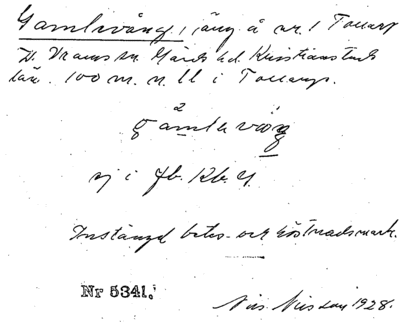 Gamlevång, äng å nr. 1 Tollarp
Ö. Vrams sn. Gärds hd. Kristianstads
län. 100 m. n. ll i Tollarp.
gamla våŋ
ej i Jb. Kb. y.
Instängd betes- och höstnadsmark.
Nr 5341.
Nils Nilsson 1928.